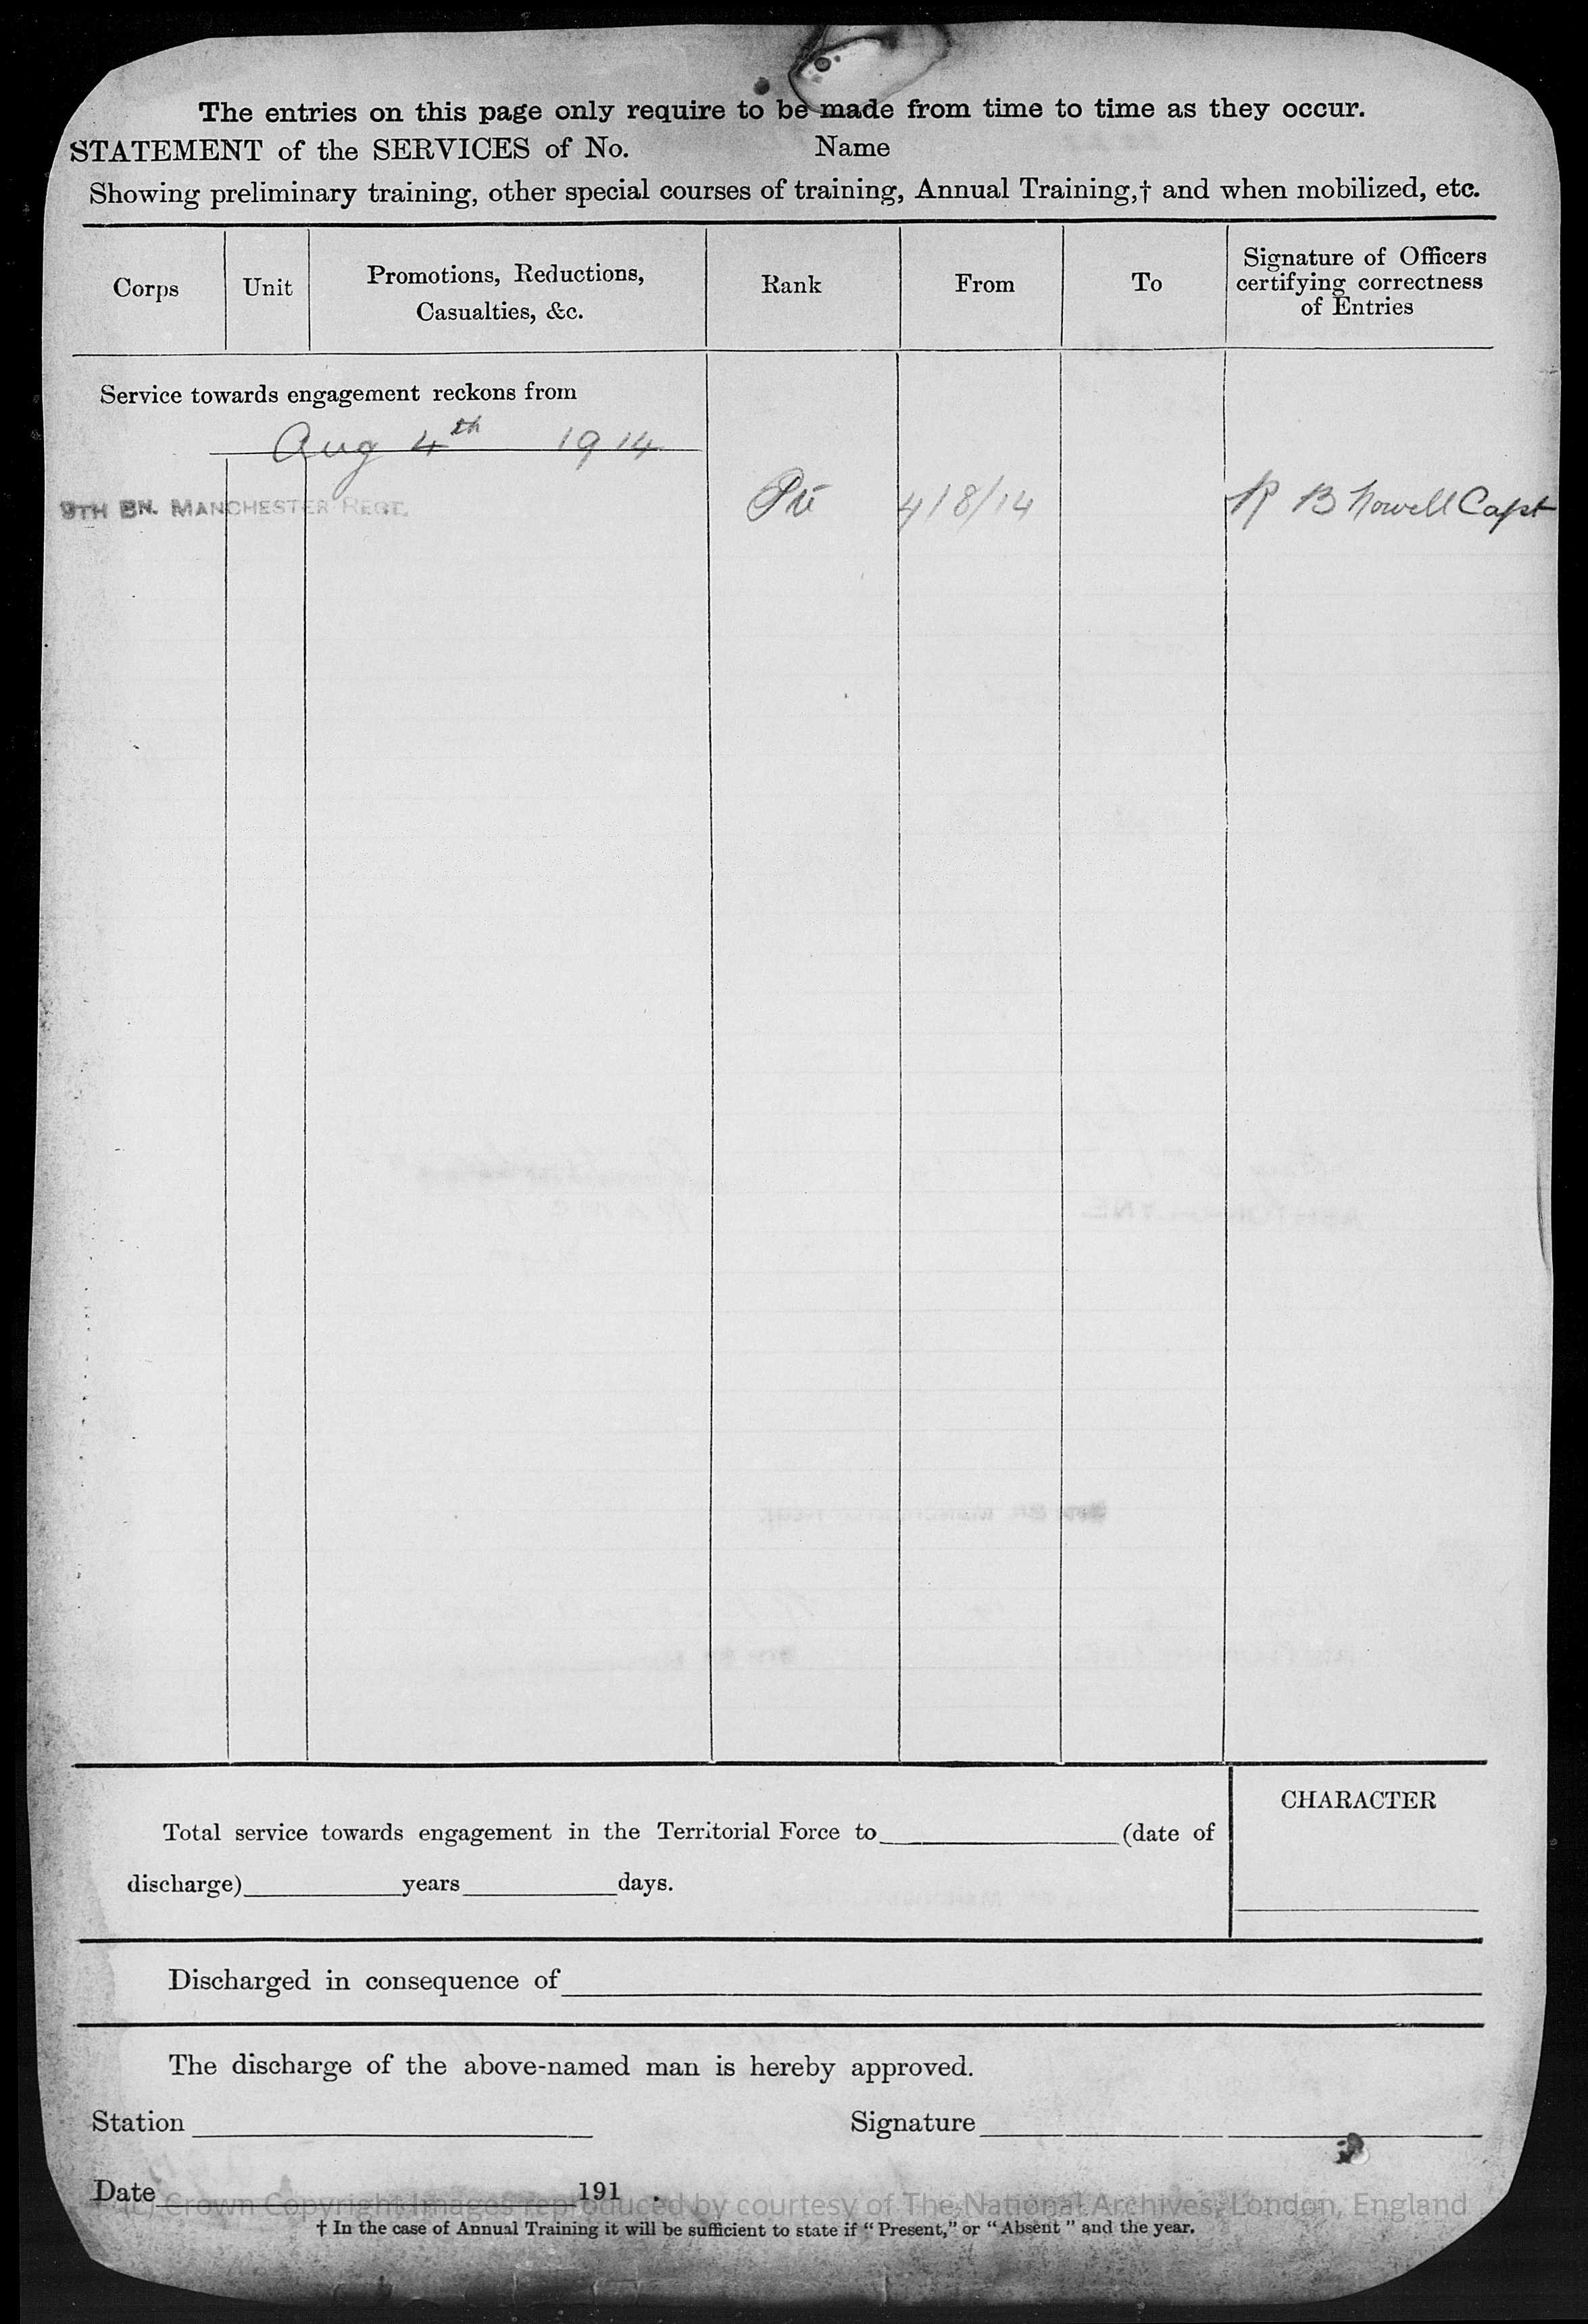 The entries on this page only require to be made from time to time as they occur.
STATEMENT of the SERVICES of No. Name
Showing preliminary training, other special courses of training, Annual Training,† and when mobilized, etc.
Corps Unit Promotions, Reductions, Casualties, &c. Rank From To Signature of Officers certifying correctness of Entries
Service towards engagement reckons from
Aug 4th 1914
9TH BN. MANCHESTER REGT. Pte 4/8/14 R B Nowell Capt
CHARACTER
Total service towards engagement in the Territorial Force to (date of
discharge) years days.
Discharged in consequence of
The discharge of the above-named man is hereby approved.
Station Signature
Date 191 .
(c) Crown Copyright Images reproduced by courtesy of The National Archives, London, England
† In the case of Annual Training it will be sufficient to state if “Present,” or “Absent” and the year.